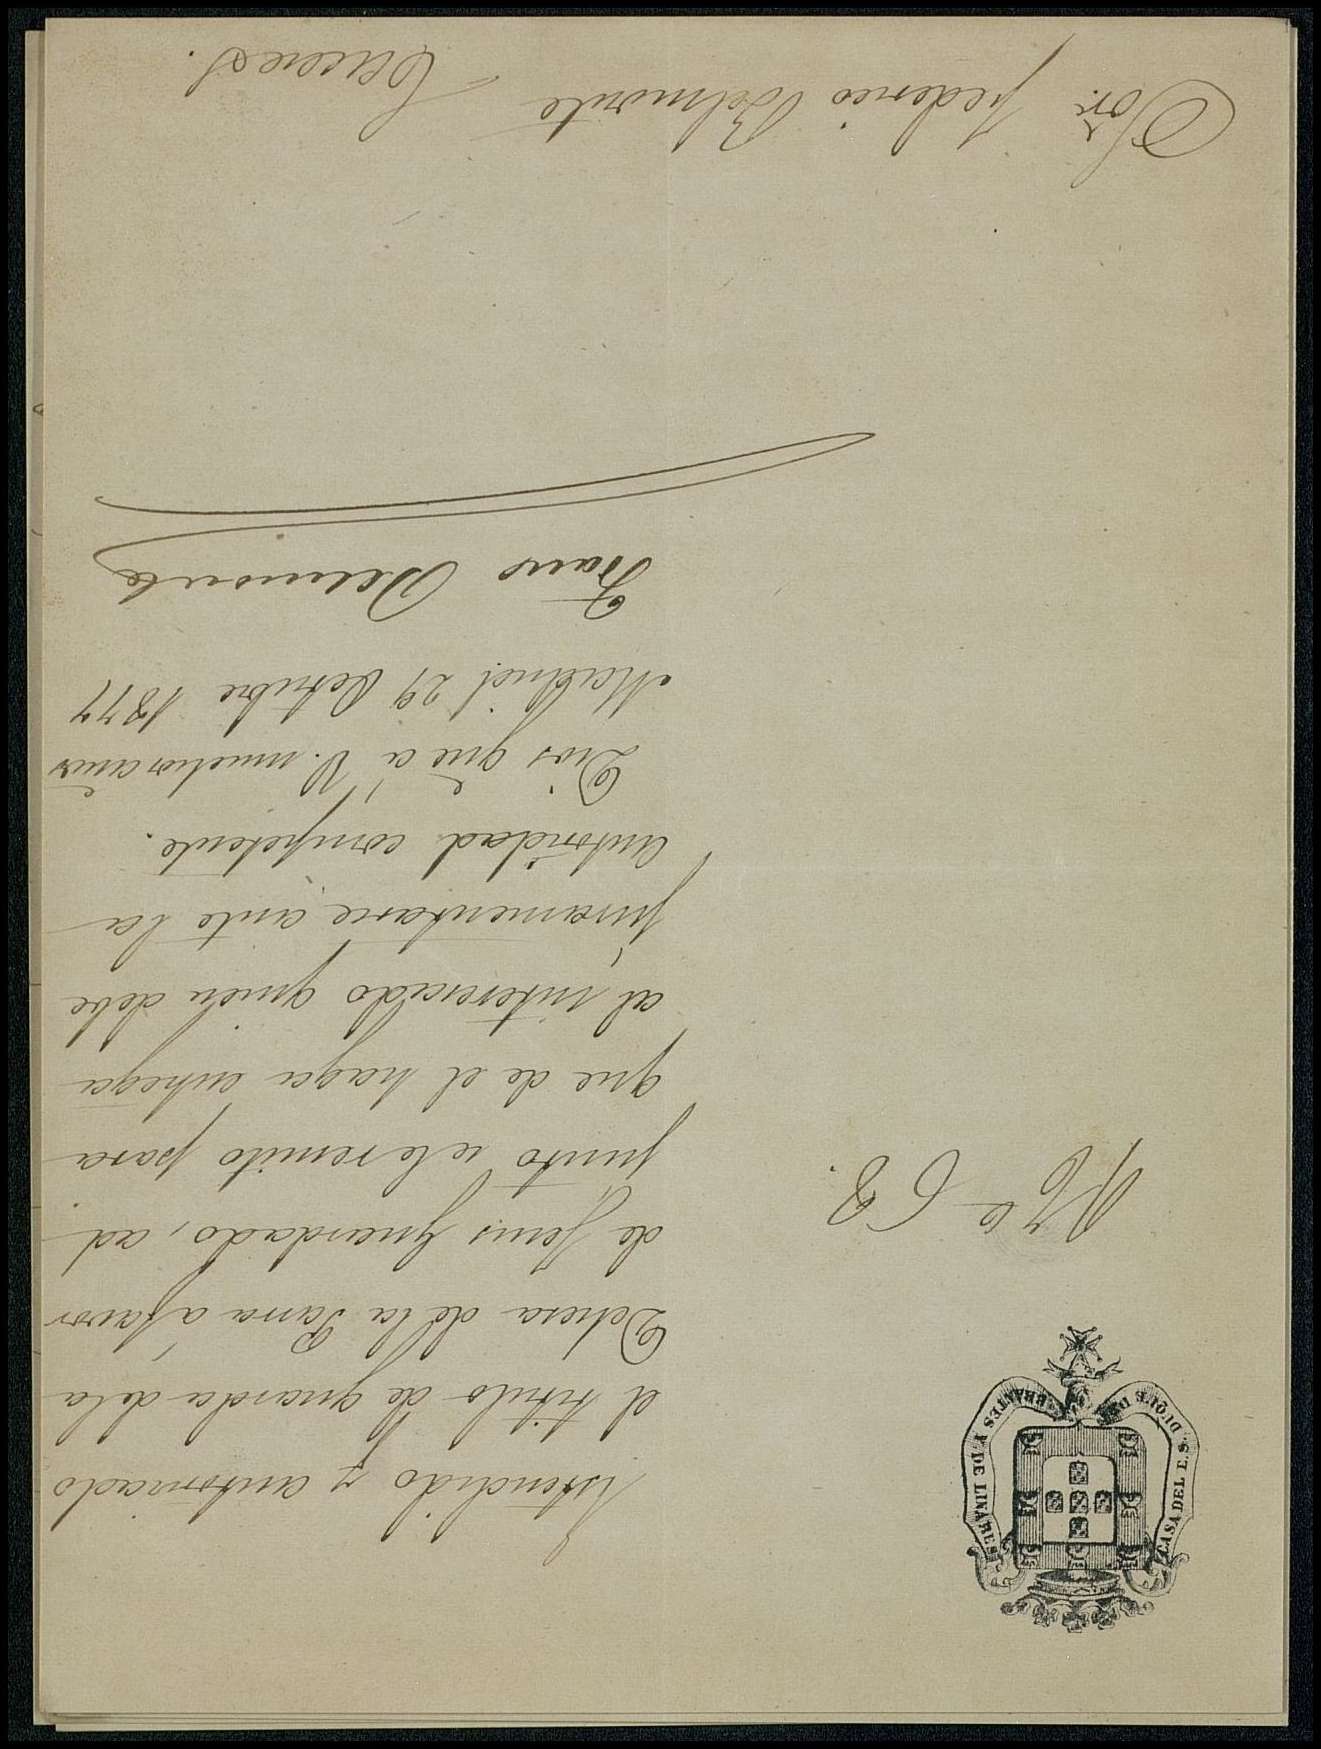 CASA DEL E.S. DUQUE DE ABRANTES Y DE LINARES
Nº 68.
Estendido y autorizado
el titulo de guarda de la
Dehesa de la Parra á favor
de Jesus Guardado, ad-
junto le remito para
que de el haga entrega
al interesado quien debe
juramentarse ante la
autoridad competente.
Dios gue á V. muchos años
Madrid 29 Octubre 1877
Franco Belmonte
Sor. Federico Belmonte – Caceres.